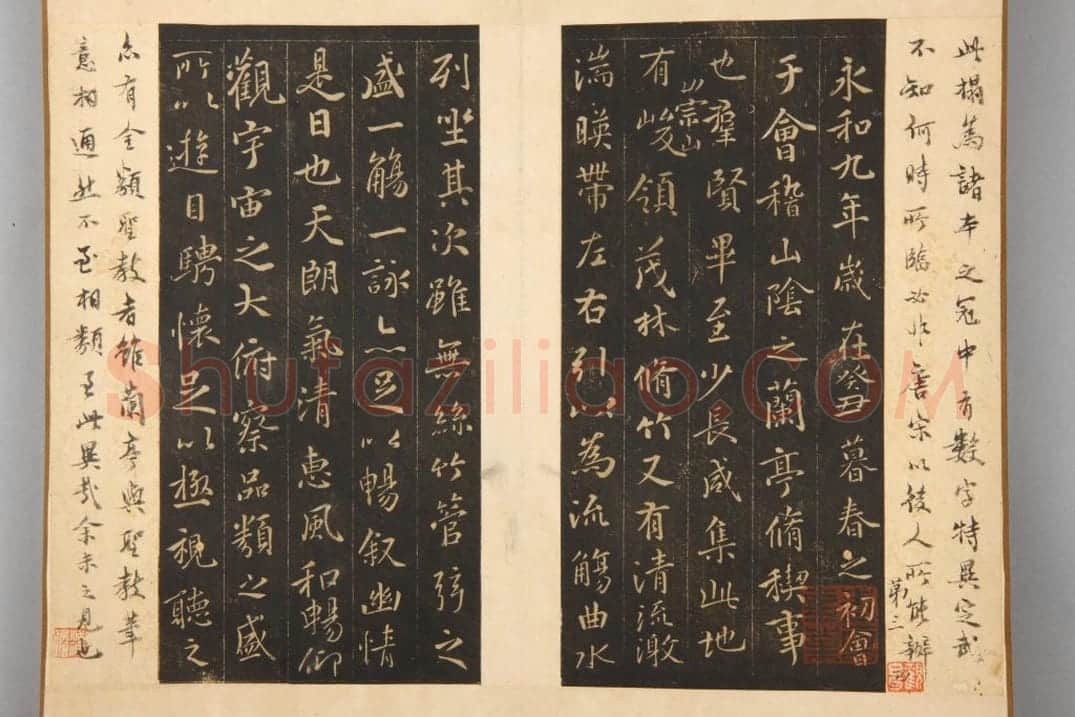 此搨為諸本之冠中有數字特異定武
不知何時所臨必非唐宋以後人所能辦
第三
永和九年歲在癸丑暮春之初會
于會稽山陰之蘭亭脩稧事
也羣賢畢至少長咸集此地
崇山
有峻領茂林脩竹又有清流激
湍暎帶左右引以為流觴曲水
列坐其次雖無絲竹管弦之
盛一觴一詠亦足以暢叙幽情
是日也天朗氣清惠風和暢仰
觀宇宙之大俯察品類之盛
所以遊目騁懷足以極視聽之
亦有全類聖教者雖蘭亭與聖教筆
意相通然不至相類至此異哉余未之見也
Shufaziliao.COM